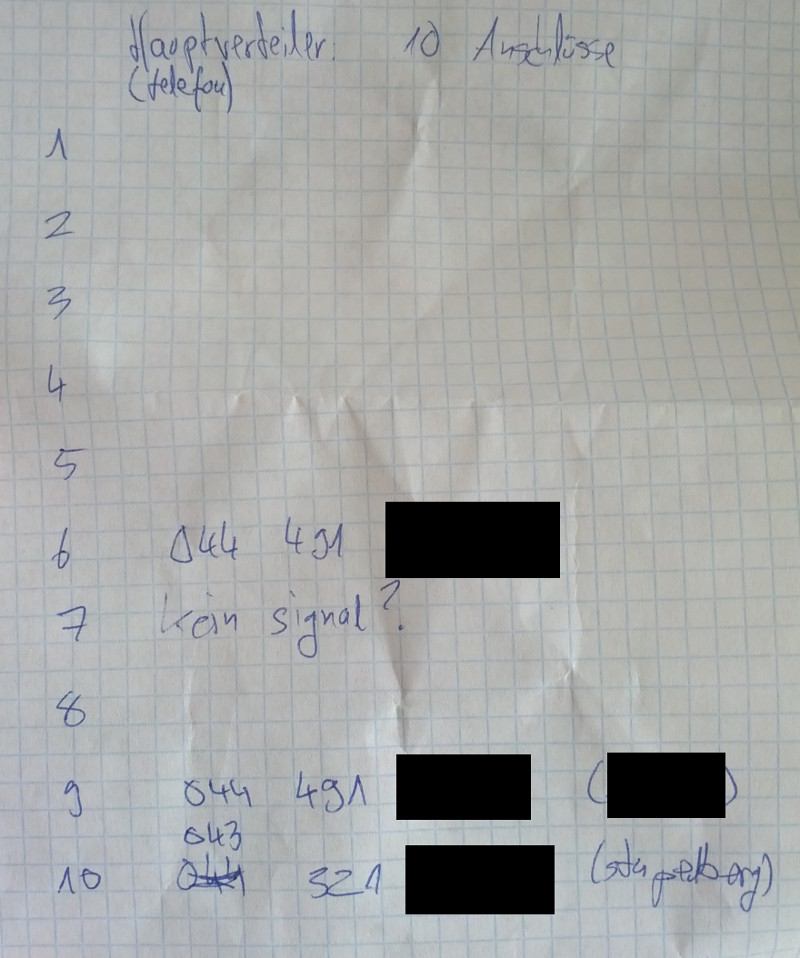 Hauptverteiler: 10 Anschlüsse
(telefon)
1
2
3
4
5
6 044 491
7 kein signal?
8
9 044 491 ( )
043
10 044 321